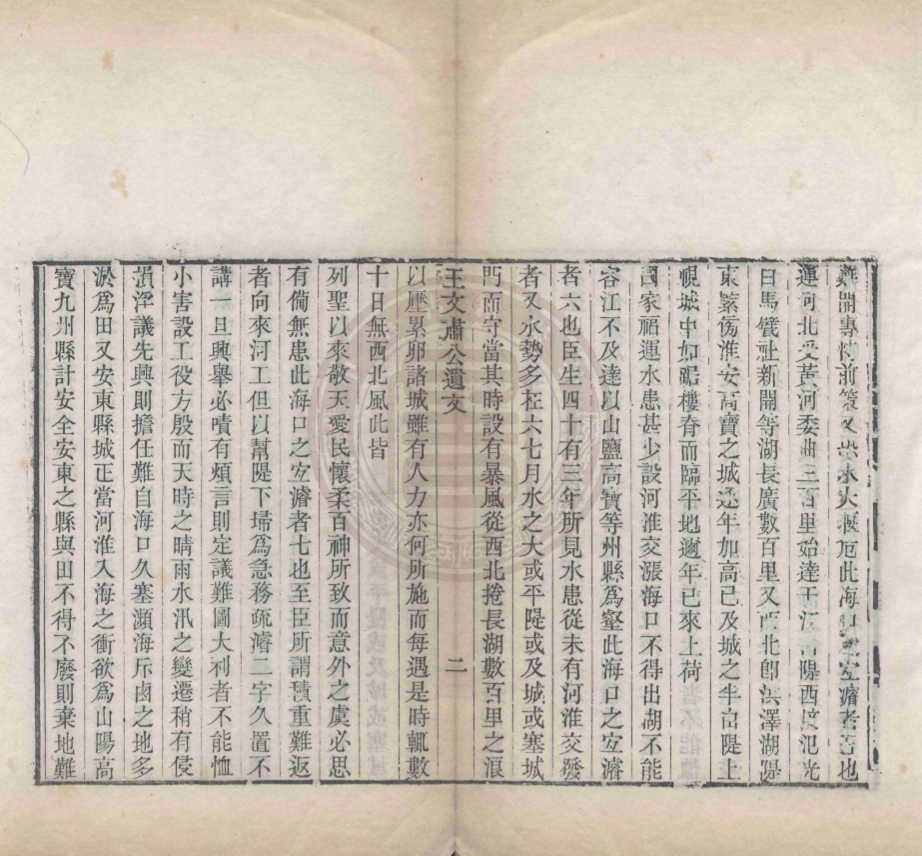 難開專恃前策又洪水大握厄此海口之宜濬者五也
運河北受黃河委曲三百里始達于江淮陽西隄氾光
白馬甓社新開等湖長廣數百里又西北卽洪澤湖隄
東縈傷淮安高寶之城逐年加高已及城之半由隄上
視城中如踞樓脊而臨平地邇年已來上荷
國家福運水患甚少設河淮交漲海口不得出湖不能
容江不及達以山鹽高寶等州縣爲壑此海口之宜濬
者六也臣生四十有三年所見水患從未有河淮交發
者又水勢多在六七月水之大或平隄或及城或塞城
門而守當其時設有暴風從西北捲長湖數百里之浪
王文肅公遺文 二
以壓累卵諸城雖有人力亦何所施而每遇是時輒數
十日無西北風此皆
列聖以來敬天愛民懷柔百神所致而意外之虞必思
有備無患此海口之宜濬者七也至臣所謂積重難返
者向來河工但以幫隄下埽爲急務疏濬二字久置不
講一旦興舉必嘖有煩言則定議難圖大利者不能恤
小害設工役方殷而天時之晴雨水汛之變遷稍有侵
損浮議先興則擔任難自海口久塞瀕海斥鹵之地多
淤爲田又安東縣城正當河淮入海之衝欲爲山陽高
寶九州縣計安全安東之縣與田不得不廢則棄地難